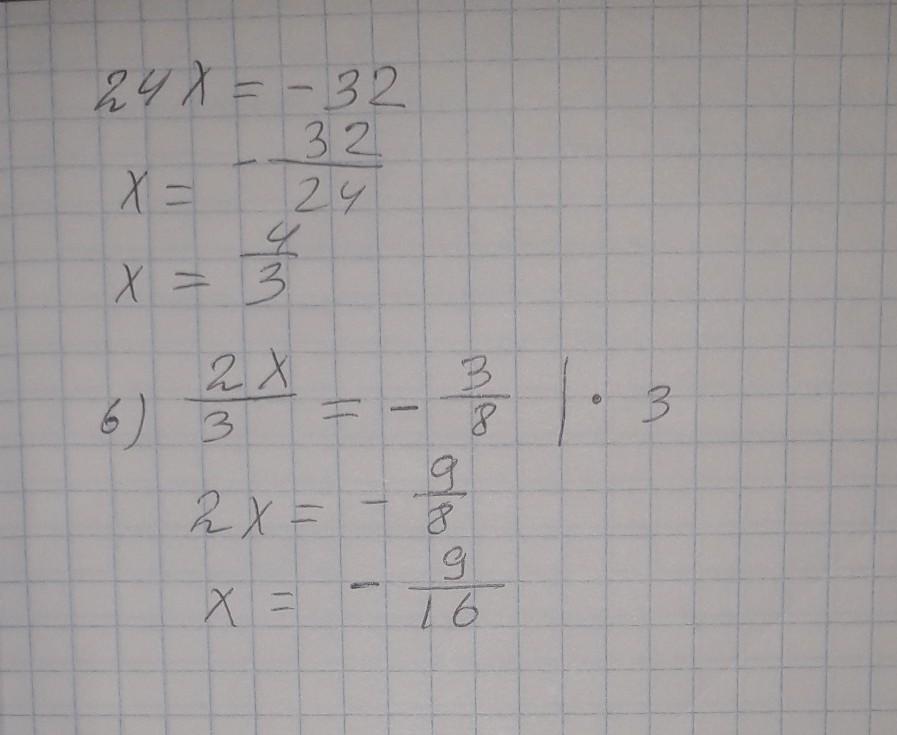 24x = -32
x = - 32/24
x = 4/3
6) 2x/3 = - 3/8 | · 3
2x = - 9/8
x = - 9/16